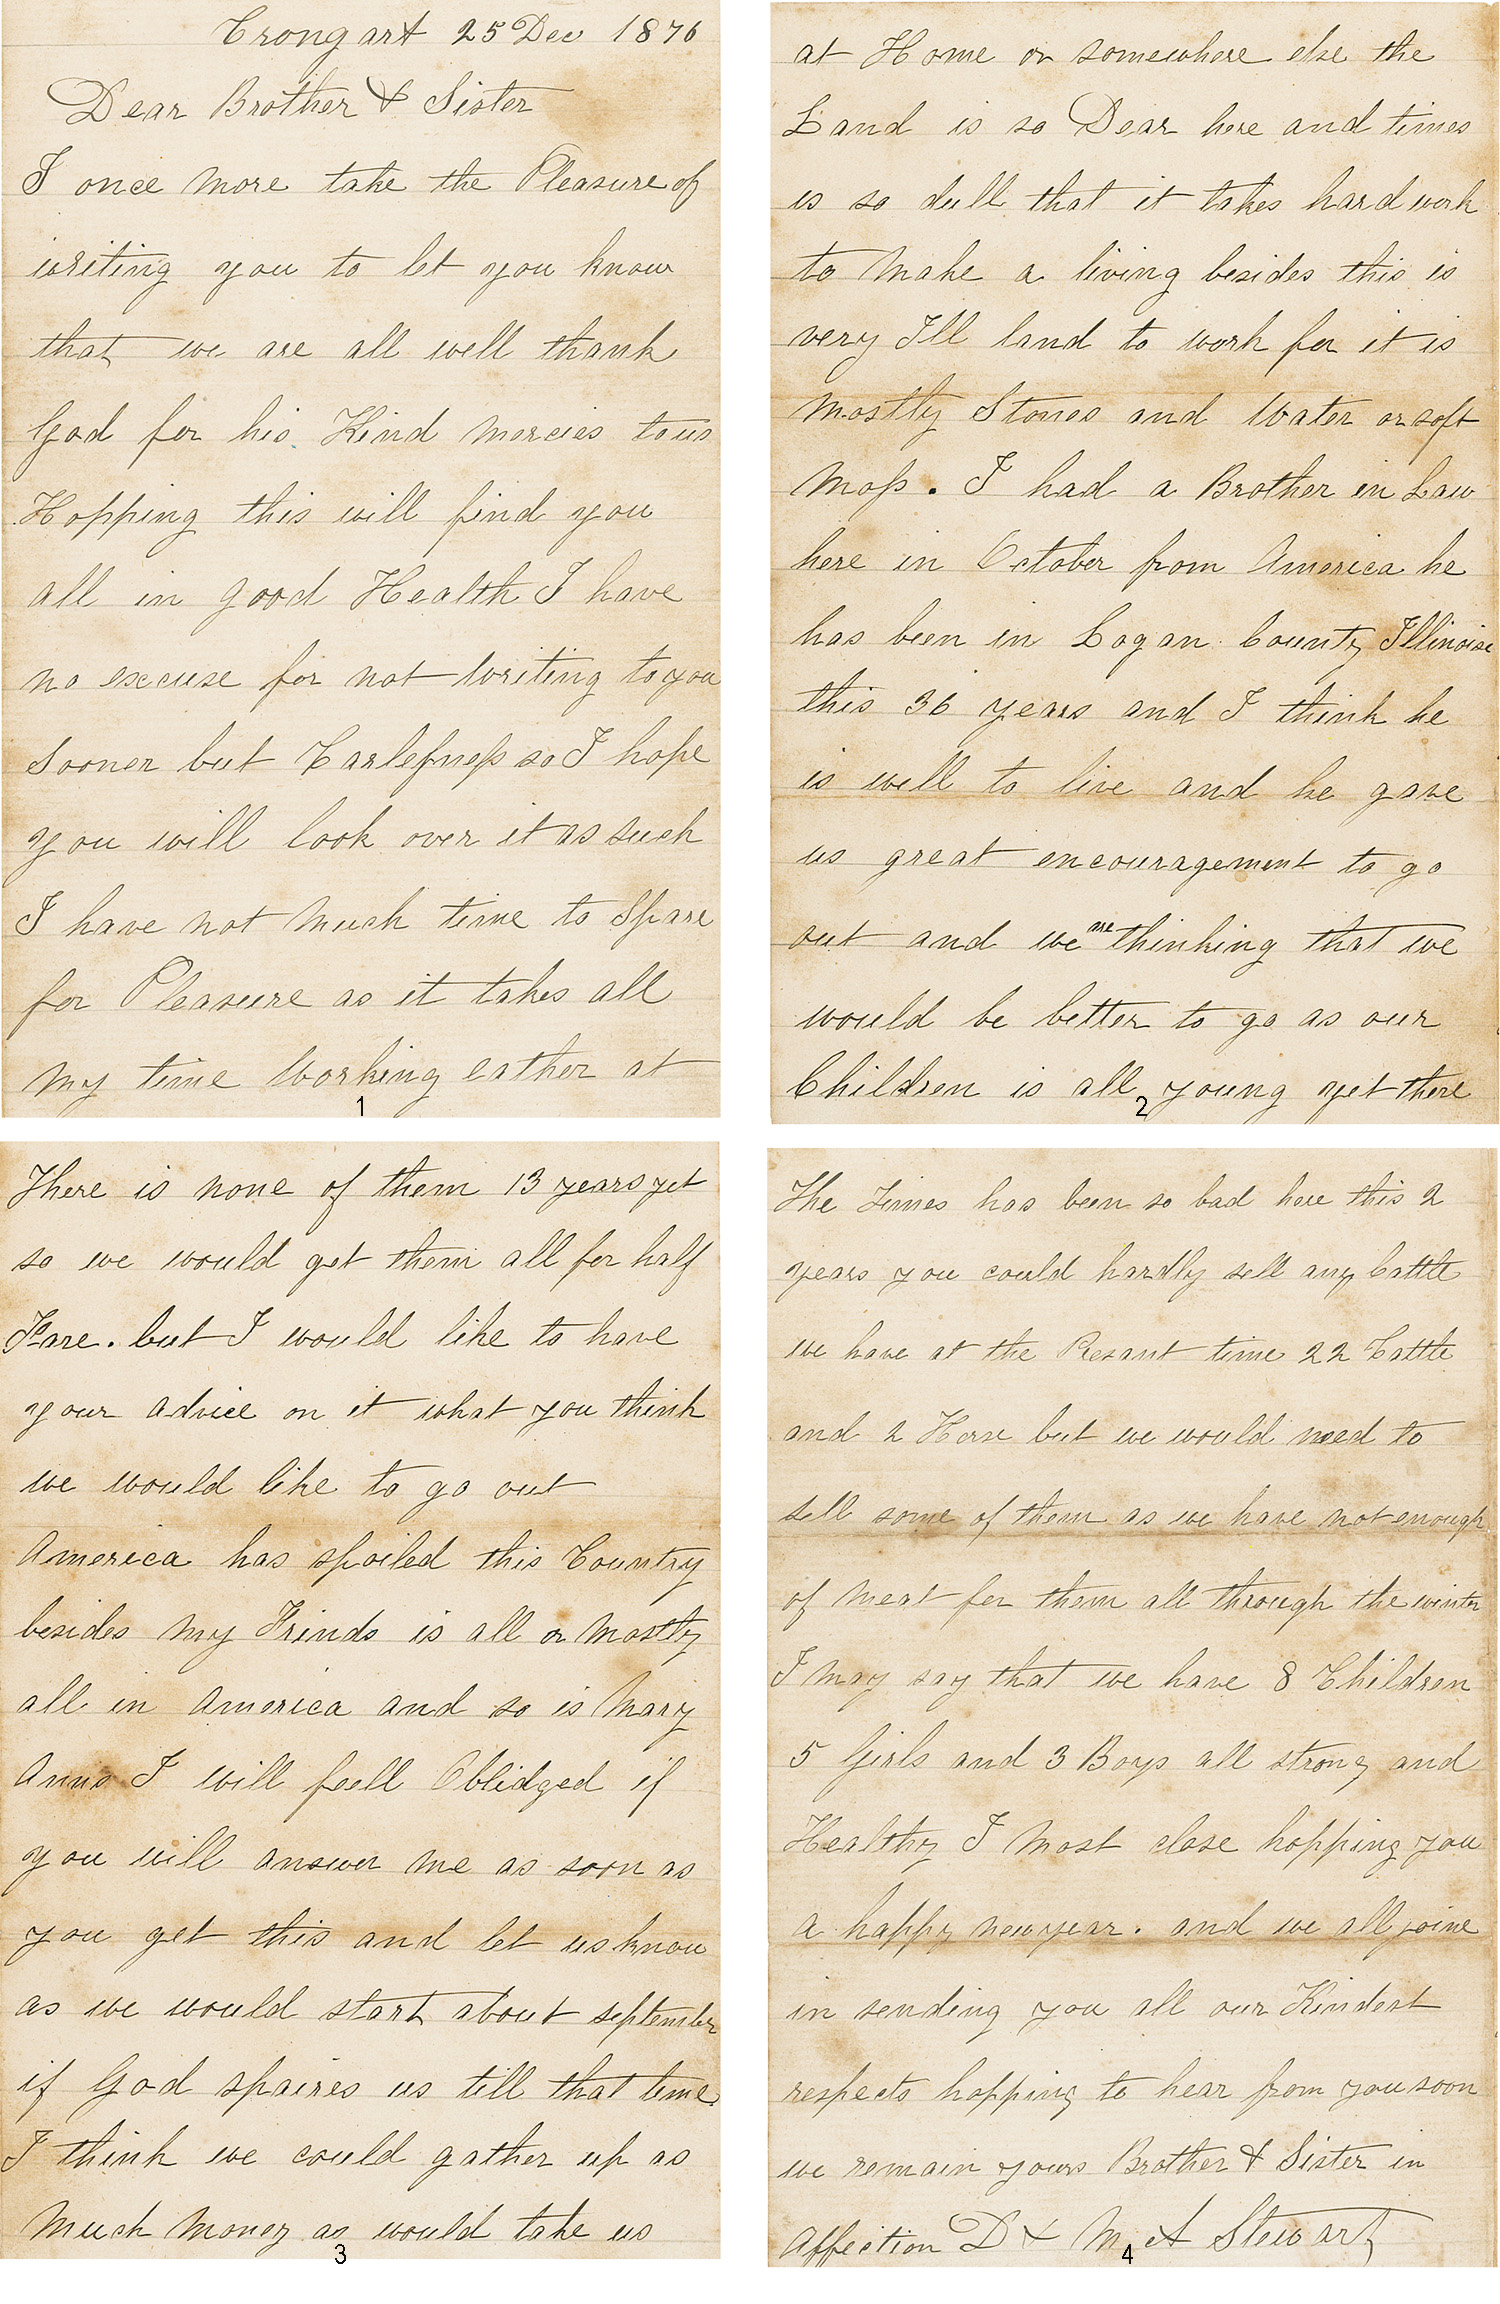 Crongart 25 Dec 1876
Dear Brother & Sister
I once more take the Pleasure of
writing you to let you know
that we are all well thank
God for his Kind Mercies to us
Hopping this will find you
all in good Health I have
no excuse for not writing to you
Sooner but Carlessness so I hope
you will look over it as such
I have not much time to Spare
for Pleasure as it takes all
My time Working eather at
1
at Home or somewhere else the
Land is so Dear here and times
is so dull that it takes hard work
to Make a living besides this is
very Ill land to work for it is
Mostly Stones and Water or soft
Moss. I had a Brother in Law
here in October from America he
has been in Logan County Illinoise
this 36 years and I think he
is well to live and he gave
us great encouragement to go
out and we are thinking that we
would be better to go as our
Children is all young yet there
2
There is none of them 13 years yet
so we would get them all for half
Fare. but I would like to have
your advice on it what you think
we would like to go out
America has spoiled this Country
besides My Frinds is all or Mostly
all in America and so is Mary
Anns I will feell Oblidged if
you will answer me as soon as
you get this and let us know
as we would start about september
if God spaires us till that time
I think we could gather up as
Much Money as would take us
3
The Times has been so bad here this 2
years you could hardly sell any Cattle
we have at the Presant time 22 Cattle
and 2 Horse but we would need to
sell some of them as we have not enough
of meat for them all through the winter
I may say that we have 8 Children
5 Girls and 3 Boys all strong and
Healthy I Most close hopping you
a happy new year. and we all joine
in sending you all our Kindest
respects hopping to hear from you soon
we remain yours Brother & Sister in
Affection D & M A Stewart
4